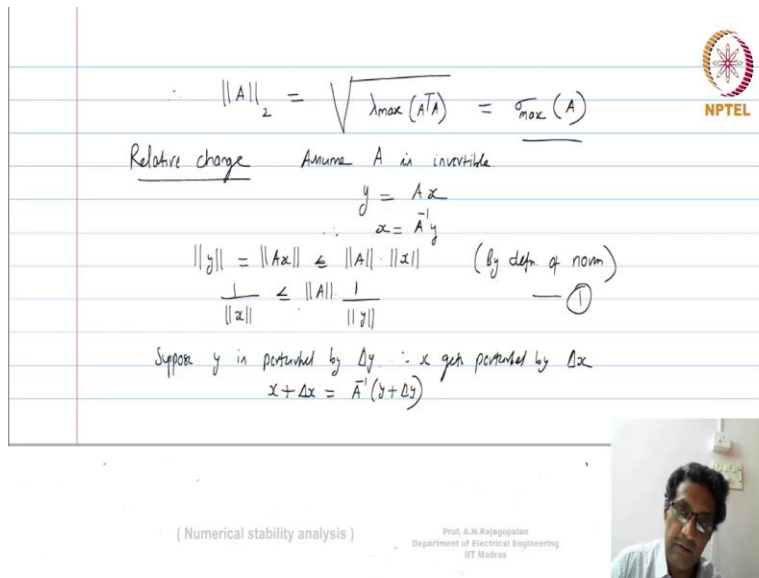 ∴ ||A||₂ = √(λmax (AᵀA)) = σmax (A)
NPTEL
Relative change Assume A is invertible.
y = Ax
∴ x = A⁻¹y
||y|| = ||Ax|| ≤ ||A||·||x|| (By defn. of norm)
1/||x|| ≤ ||A||·1/||y|| — ①
Suppose y is perturbed by Δy. ∴ x gets perturbed by Δx
x + Δx = A⁻¹(y + Δy)
( Numerical stability analysis )
Prof. A.N.Rajagopalan
Department of Electrical Engineering
IIT Madras